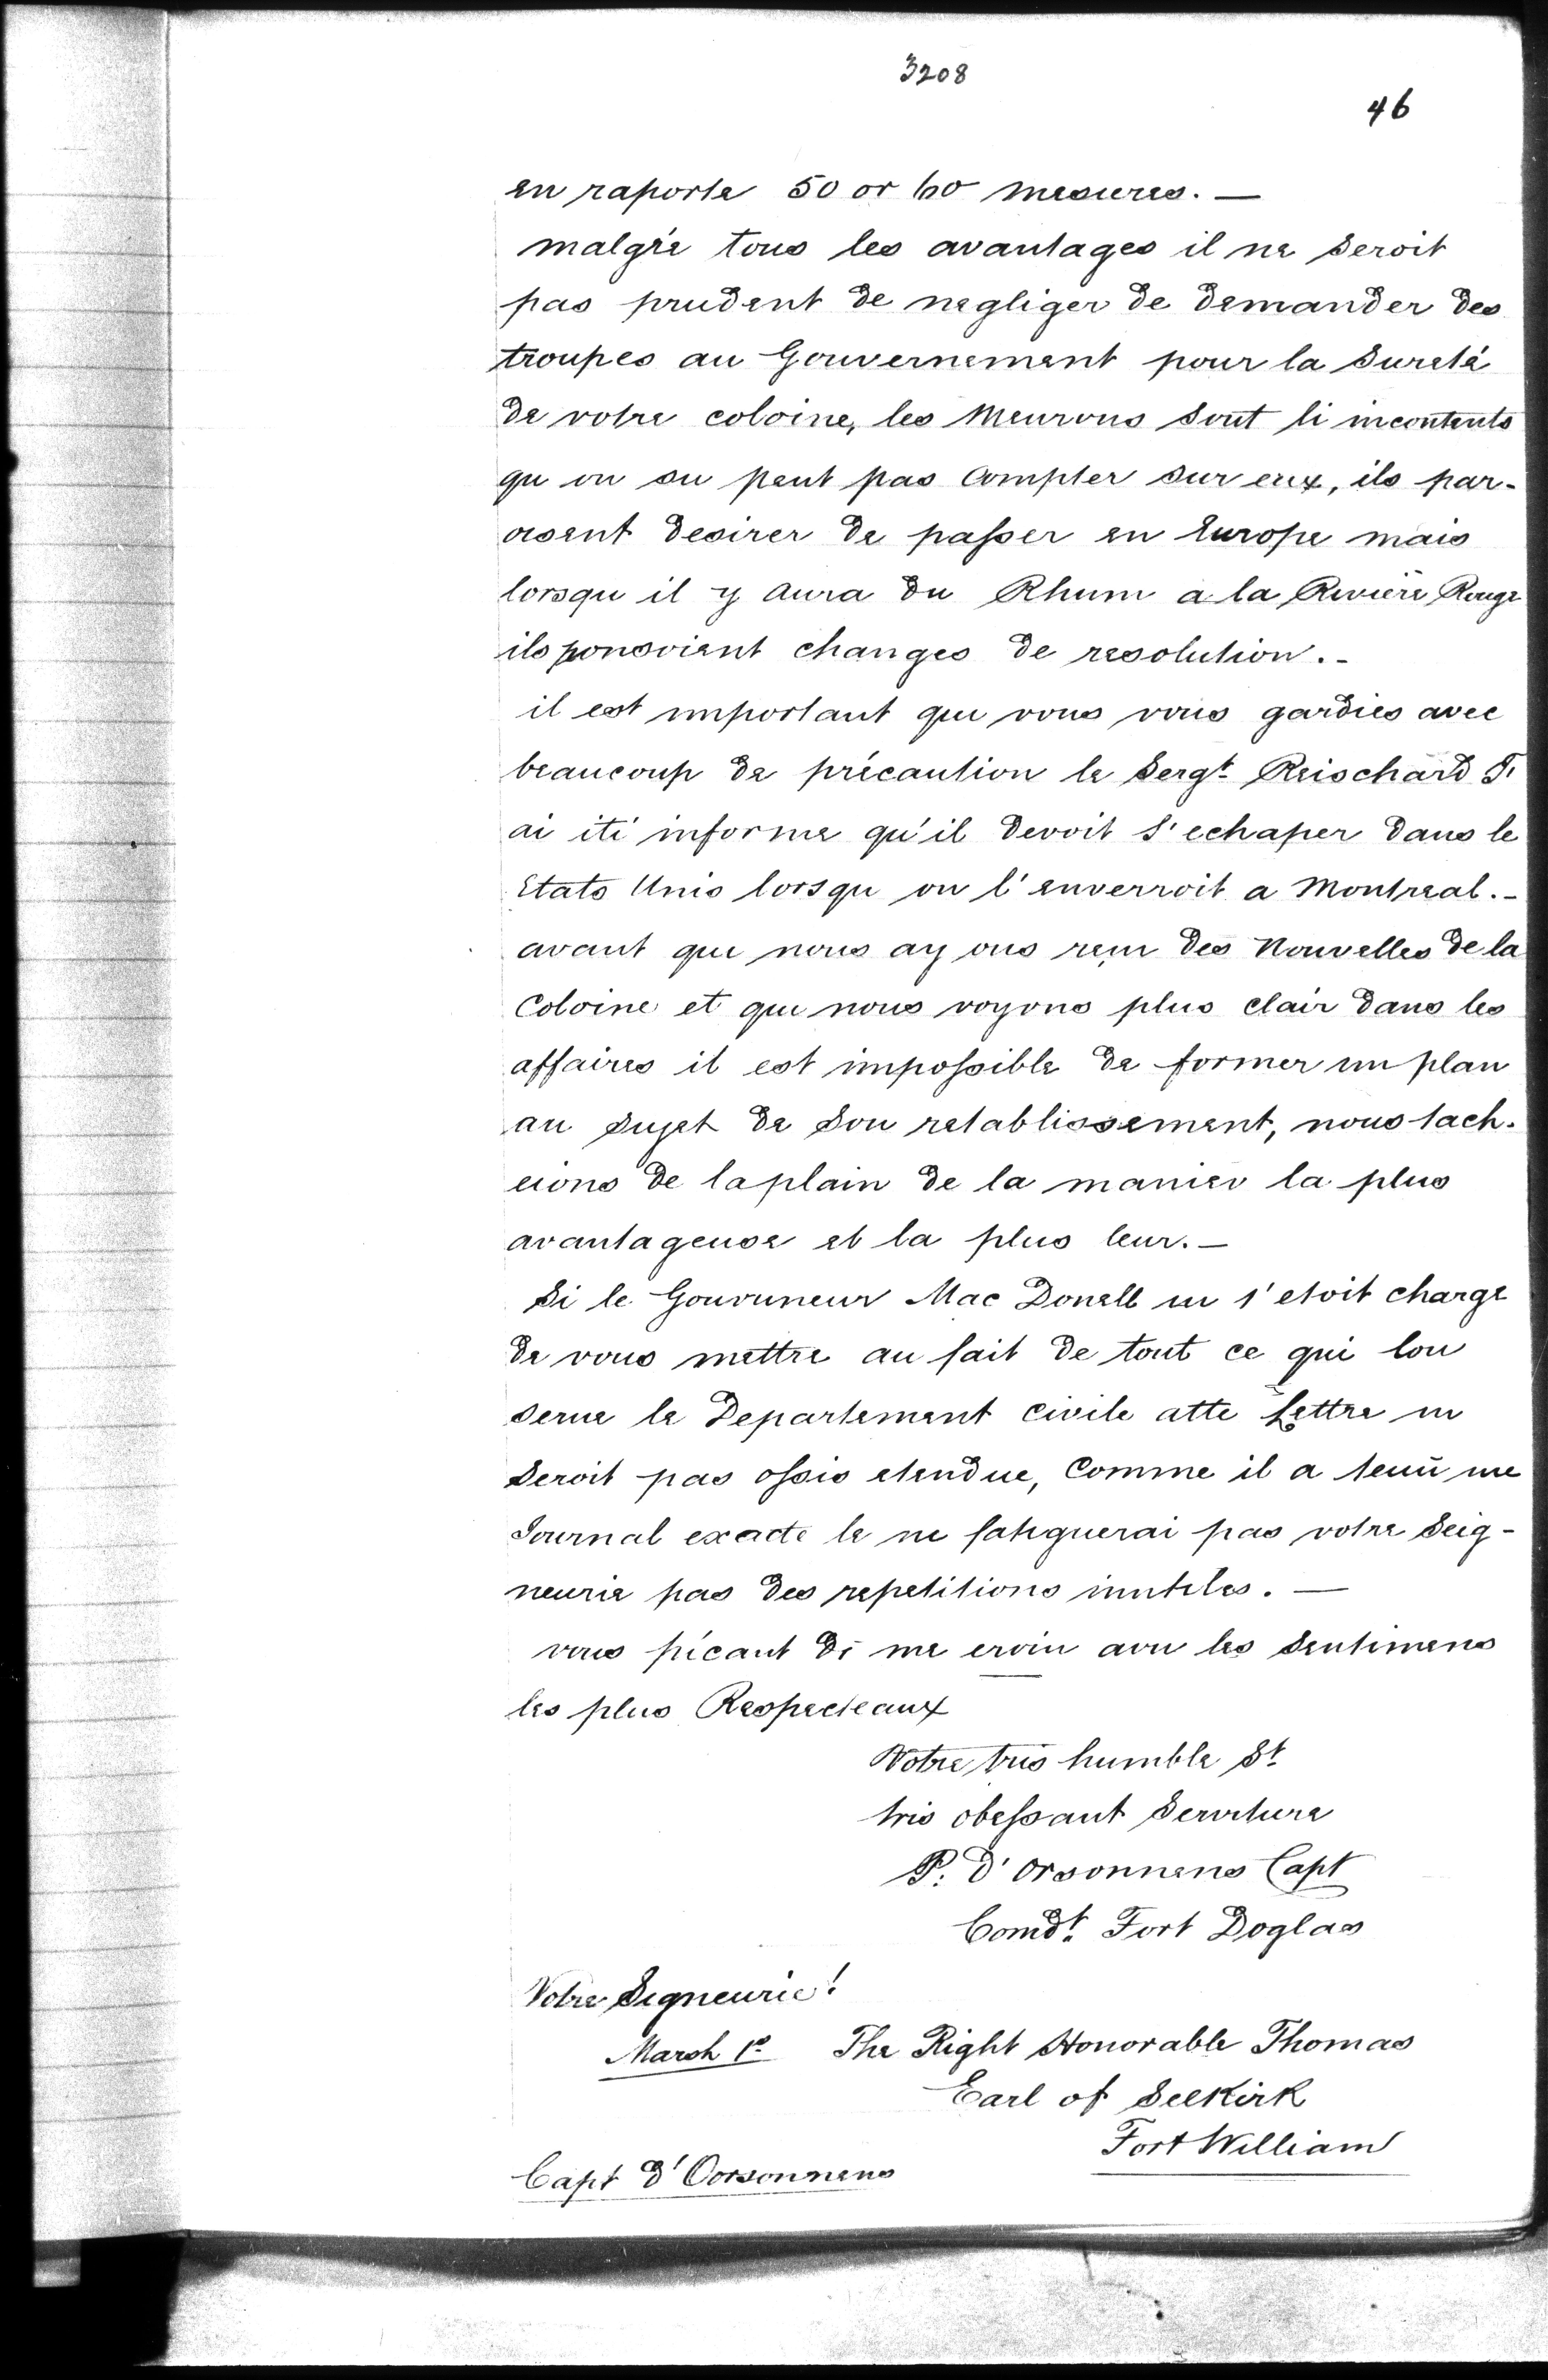 3208
46
en raporte 50 or 60 mesures. —
malgré tous les avantages il ne seroit
pas prudent de negliger de demander des
troupes au Gouvernement pour la Sureté
de votre coloine, les Meurons sont li incontents
qu on su peut pas compter sur eux, ils par-
oisent desirer de passer en Europe mais
lorsqu il y aura du Rhum a la Rivière Rouge
ils ponsoient changes de resolution. -
il est important que vous vous gardies avec
beaucoup de précaution le Sergt Reischard J'
ai iti informe qu'il devoit s'echaper dans le
Etats Unis lorsqu on l'enverroit a Montreal. -
avant que nous ay ons reçu des Nouvelles de la
Coloine et que nous voyons plus clair dans les
affaires il est impossible de former un plan
au sujet de son retablissement, nous tach-
eions de laplain de la manier la plus
avantageuse et la plus leur. —
Si le Gouvuneur Mac Donell m s'etoit charge
de vous mettre au fait de tout ce qui lon
serue le Departement civile atte Lettre m
seroit pas ossis etendue, Comme il a tenu me
Journal exacte le ne fatiguerai pas votre Seig-
neurie pas des repetitions inutiles. —
vous picant di me eroin avu les Sentimens
les plus Respecteaux
Votre tris humble St
tris obessant Serviture
P. D'Orsonnens Capt
Comdt Fort Doglas
Votre Signeurie!
March 1st The Right Honorable Thomas
Earl of Selkirk
Fort William
Capt D'Oorsonnens